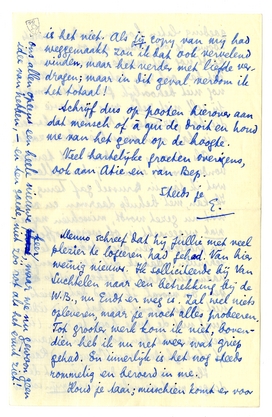 is het niet. Als jij copy van mij had
weggemaakt zou ik dat ook vervelend
vinden, maar het verder met liefde ver-
dragen; maar in dit geval verdom ik
het totaal!
Schrijf dus op pooten hierover aan
dat mensch of à qui de droit en houd
me van het geval op de hoogte.
Veel hartelijke groeten overigens,
ook aan Atie en van Bep.
Steeds je
E.
Menno schreef dat hij jullie met veel
plezier te logeeren had gehad. Van hier
weinig nieuws. Ik solliciteerde bij Van
Suchtelen naar een betrekking bij de
W.B., nu Endt er weg is. Zal wel niets
opleveren, maar je moet alles probeeren.
Tot grooter werk kom ik niet, boven-
dien heb ik nu net weer wat griep
gehad. En innerlijk is het nog steeds
rommelig en beroerd in me.
Houd je taai; misschien komt er voor
ons allen opeens een heele nieuwe
waar we nu gewoon geen
idee van hebben — en dan
zoo rot als het eind ziet!